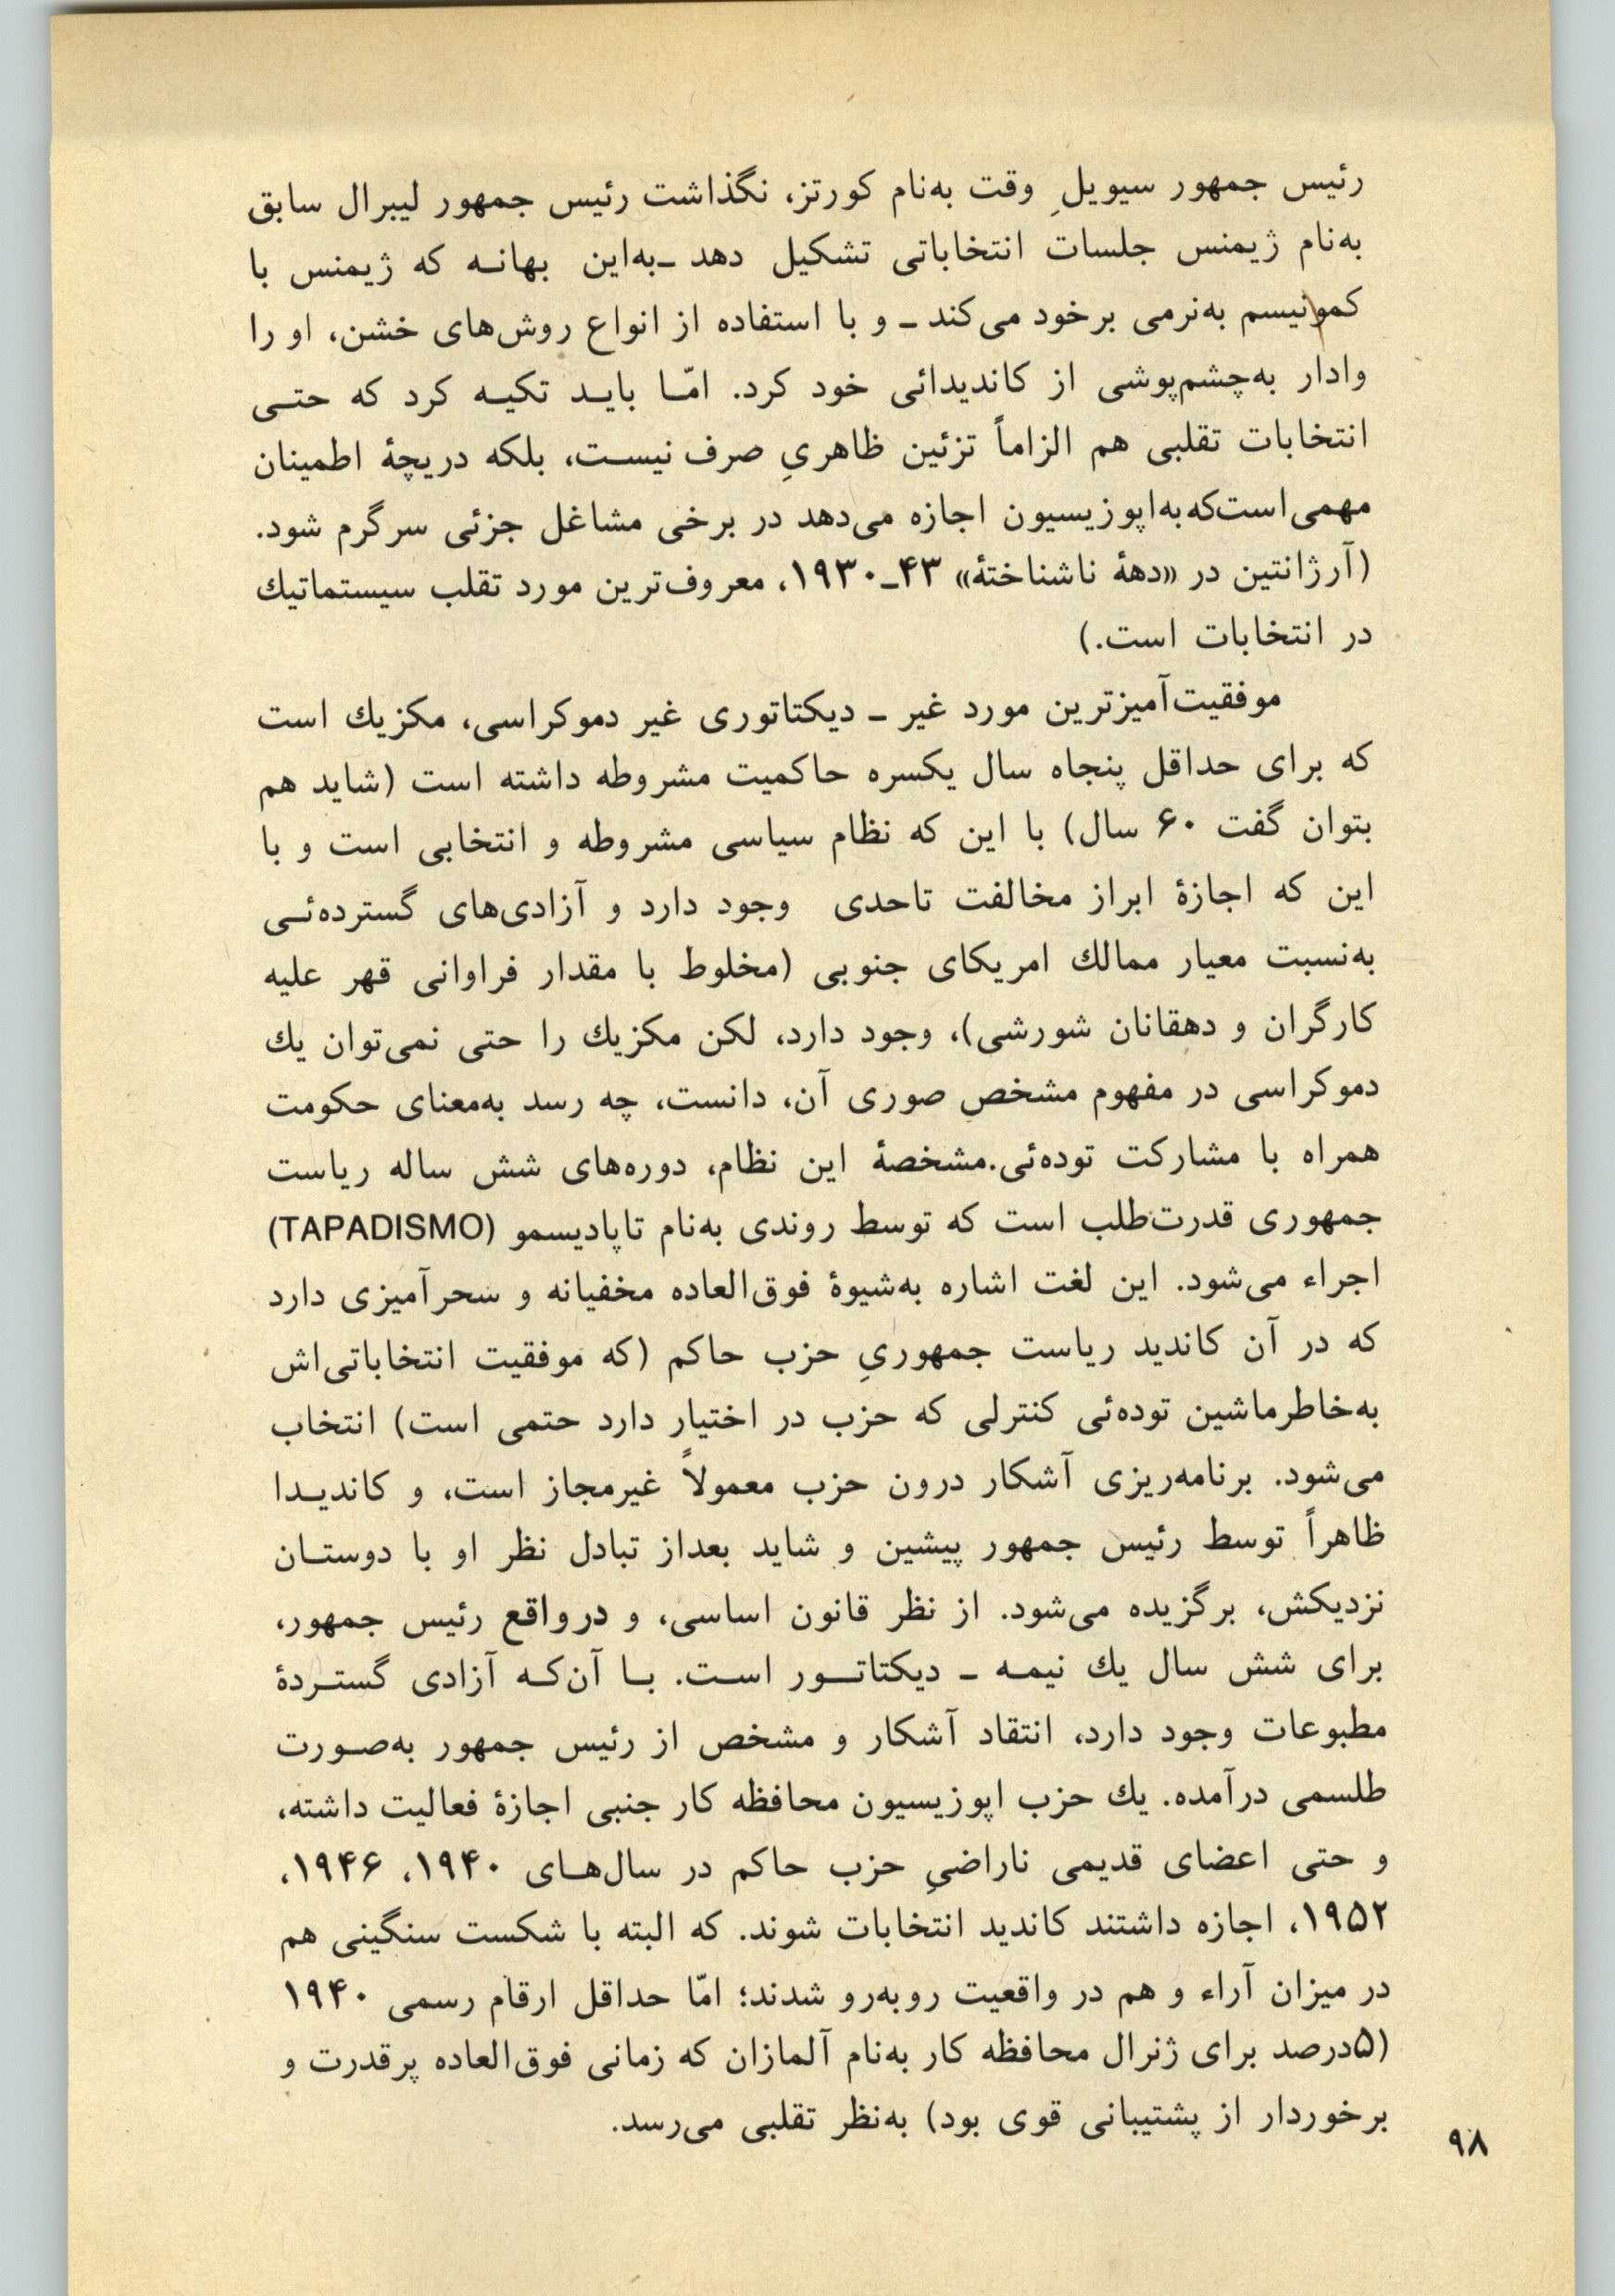 رئیس جمهور سیویلِ وقت به‌نام کورتز، نگذاشت رئیس جمهور لیبرال سابق
به‌نام ژیمنس جلسات انتخاباتی تشکیل دهد ـ‌به‌این بهانـه که ژیمنس با
کمونیسم به‌نرمی برخود می‌کند ـ و با استفاده از انواع روش‌های خشن، او را
وادار به‌چشم‌پوشی از کاندیدائی خود کرد. امّـا بایـد تکیـه کرد که حتـی
انتخابات تقلبی هم الزاماً تزئین ظاهریِ صرف نیسـت، بلکه دریچهٔ اطمینان
مهمی‌است‌که‌به‌اپوزیسیون اجازه می‌دهد در برخی مشاغل جزئی سرگرم شود.
(آرژانتین در «دههٔ ناشناختهٔ» ۴۳ـ۱۹۳۰، معروف‌ترین مورد تقلب سیستماتیك
در انتخابات است.)
موفقیت‌آمیزترین مورد غیر ـ دیکتاتوری غیر دموکراسی، مکزیك است
که برای حداقل پنجاه سال یکسره حاکمیت مشروطه داشته است (شاید هم
بتوان گفت ۶۰ سال) با این که نظام سیاسی مشروطه و انتخابی است و با
این که اجازهٔ ابراز مخالفت تاحدی وجود دارد و آزادی‌های گسترده‌ئـی
به‌نسبت معیار ممالك امریکای جنوبی (مخلوط با مقدار فراوانی قهر علیه
کارگران و دهقانان شورشی)، وجود دارد، لکن مکزیك را حتی نمی‌توان یك
دموکراسی در مفهوم مشخصِ صوری آن، دانست، چه رسد به‌معنای حکومت
همراه با مشارکت توده‌ئی.مشخصهٔ این نظام، دوره‌های شش ساله ریاست
جمهوری قدرت‌طلب است که توسط روندی به‌نام تاپادیسمو (TAPADISMO)
اجراء می‌شود. این لغت اشاره به‌شیوهٔ فوق‌العاده مخفیانه و سحرآمیزی دارد
که در آن کاندید ریاست جمهوریِ حزب حاکم (که موفقیت انتخاباتی‌اش
به‌خاطرماشین توده‌ئی کنترلی که حزب در اختیار دارد حتمی است) انتخاب
می‌شود. برنامه‌ریزی آشکار درون حزب معمولاً غیرمجاز است، و کاندیـدا
ظاهراً توسط رئیس جمهور پیشین و شاید بعداز تبادل نظر او با دوستـان
نزدیکش، برگزیده می‌شود. از نظر قانون اساسی، و درواقع رئیس جمهور،
برای شش سال یك نیمـه ـ دیکتاتـور اسـت. بـا آن‌کـه آزادی گستـردهٔ
مطبوعات وجود دارد، انتقاد آشکار و مشخص از رئیس جمهور به‌صـورت
طلسمی درآمده. یك حزب اپوزیسیون محافظه کار جنبی اجازهٔ فعالیت داشته،
و حتی اعضای قدیمی ناراضیِ حزب حاکم در سال‌هـای ۱۹۴۰، ۱۹۴۶،
۱۹۵۲، اجازه داشتند کاندید انتخابات شوند. که البته با شکست سنگینی هم
در میزان آراء و هم در واقعیت روبه‌رو شدند؛ امّا حداقل ارقام رسمی ۱۹۴۰
(۵درصد برای ژنرال محافظه کار به‌نام آلمازان که زمانی فوق‌العاده پرقدرت و
برخوردار از پشتیبانی قوی بود) به‌نظر تقلبی می‌رسد.
۹۸